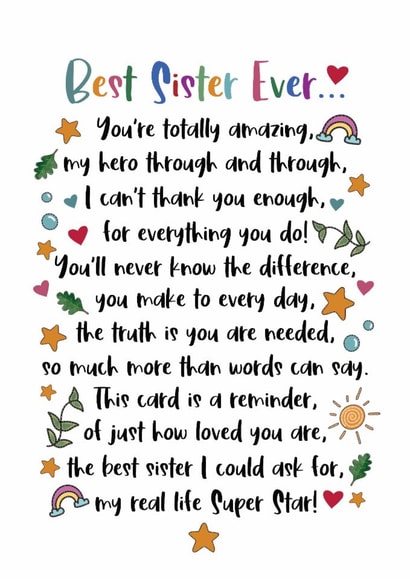 Best Sister Ever...
You're totally amazing,
my hero through and through,
I can't thank you enough,
for everything you do!
You'll never know the difference,
you make to every day,
the truth is you are needed,
so much more than words can say.
This card is a reminder,
of just how loved you are,
the best sister I could ask for,
my real life Super Star!